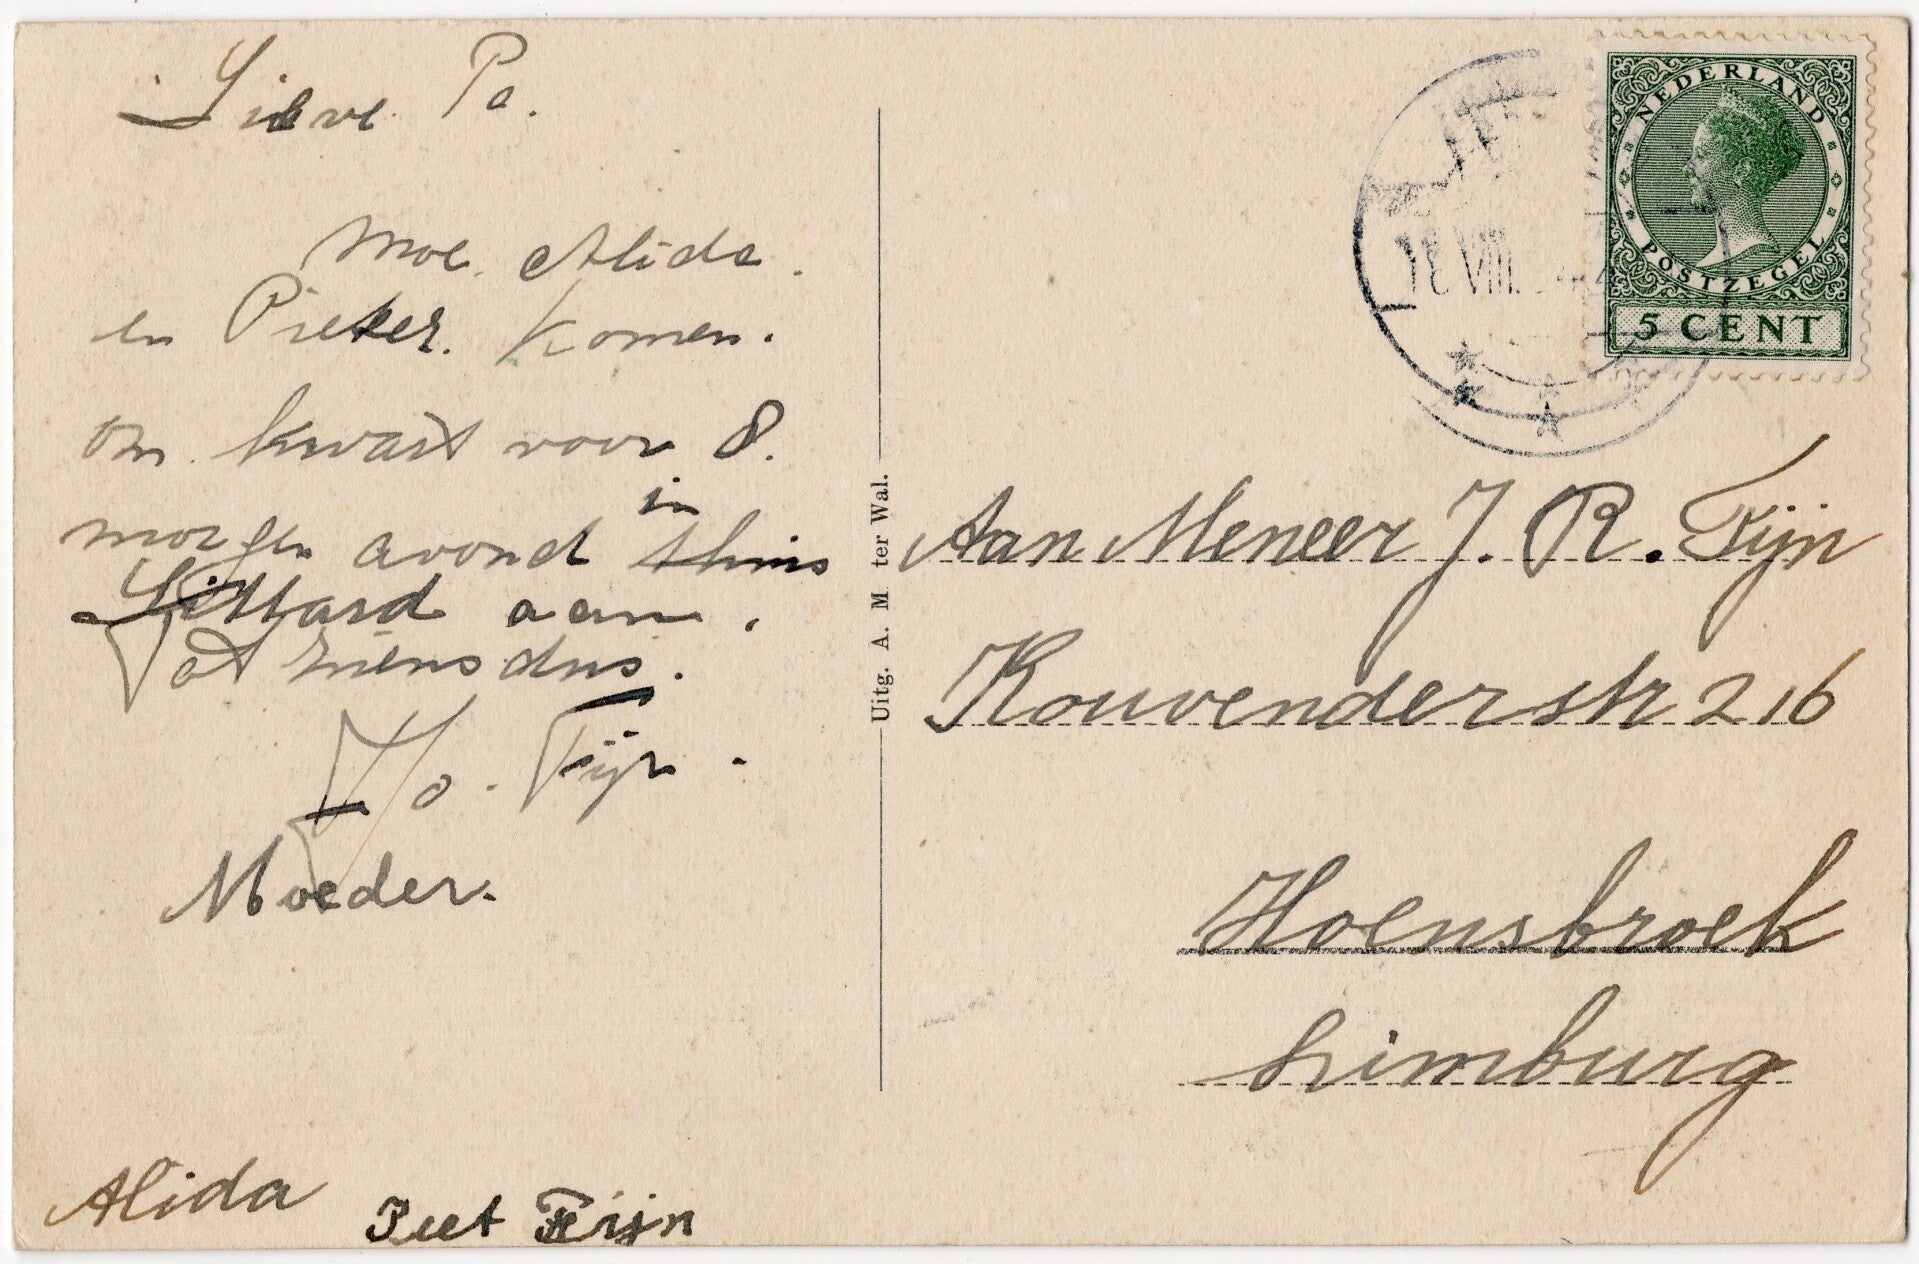 Lieve Pa.
Moe Alida
en Pieter. komen.
om kwart voor 8.
in
morgen avond thuis
Sittard aan.
Tot ziens dus.
Jo. Fijn.
Moeder.
Alida
Piet Fijn
Uitg. A. M ter Wal.
NEDERLAND
POSTZEGEL
5 CENT
18 VIII.
Aan Meneer J. R. Fijn
Kouvenderstr 216
Hoensbroek
Limburg